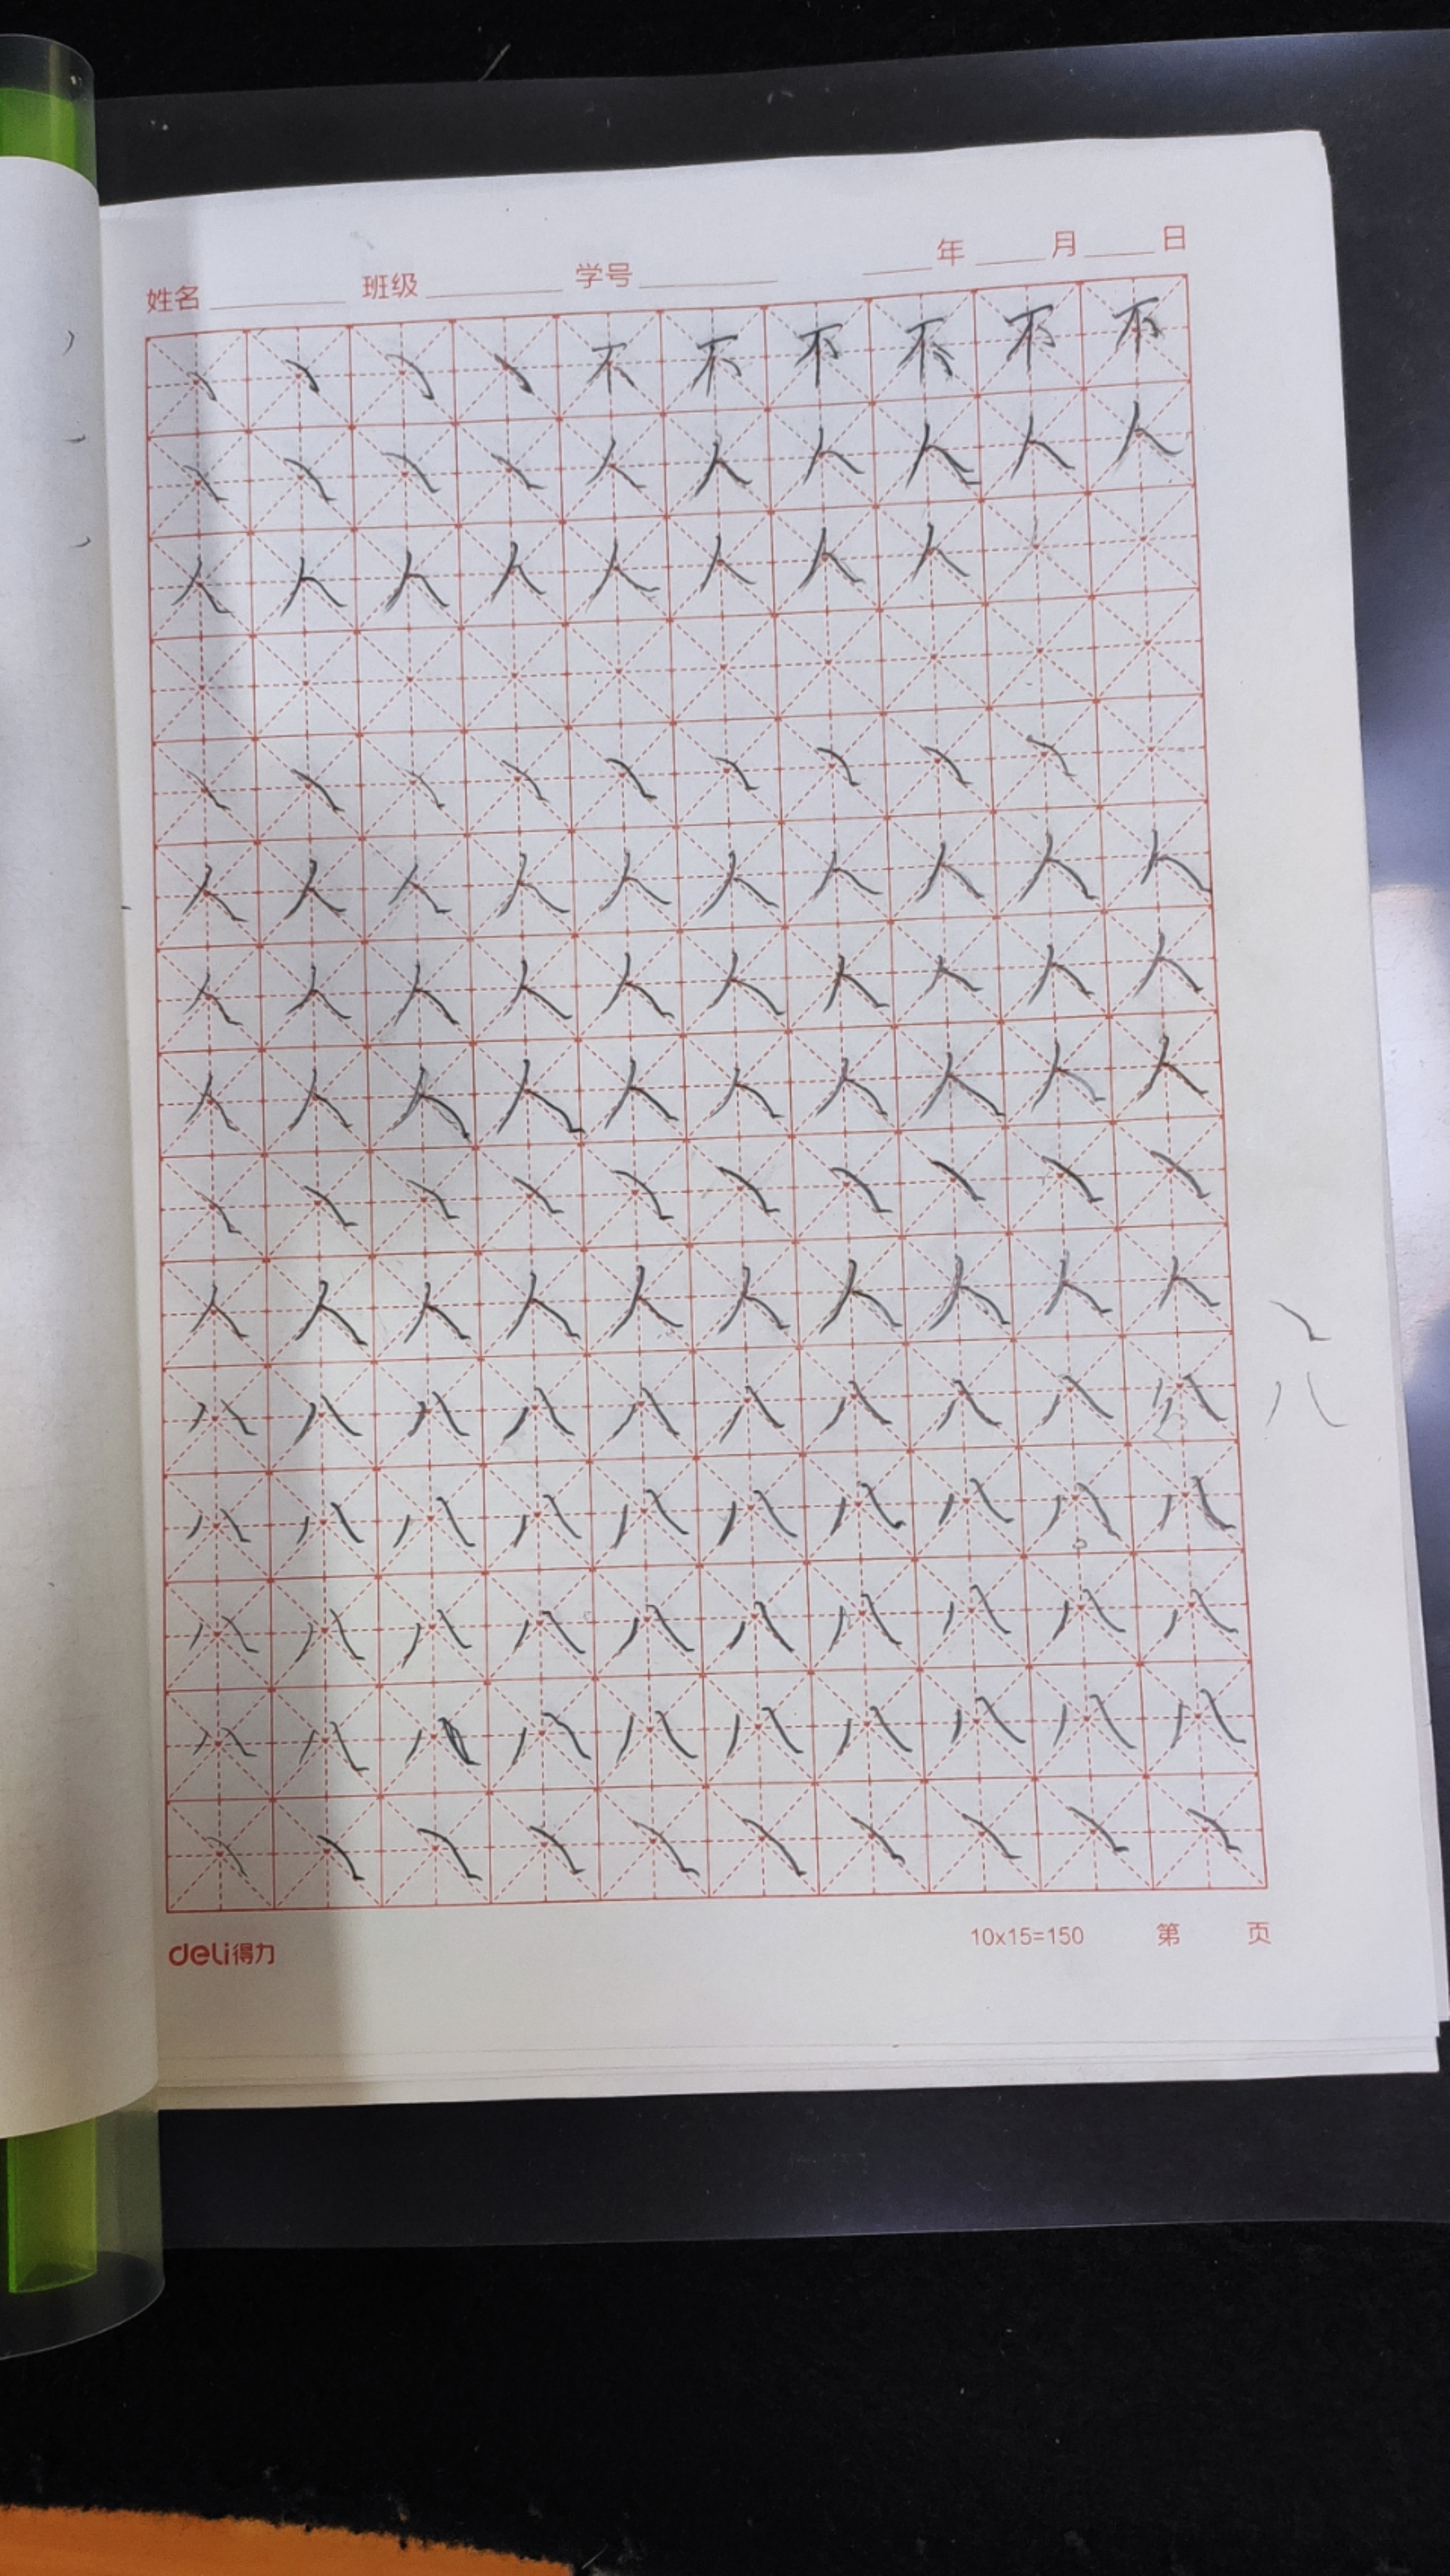 姓名 班级 学号 年 月 日
㇏ ㇏ ㇏ ㇏ 不 不 不 不 不 不
㇏ ㇏ ㇏ ㇏ 人 人 人 人 人 人
人 人 人 人 人 人 人 人
㇏ ㇏ ㇏ ㇏ ㇏ ㇏ ㇏ ㇏ ㇏
人 人 人 人 人 人 人 人 人 人
人 人 人 人 人 人 人 人 人 人
人 人 人 人 人 人 人 人 人 人
㇏ ㇏ ㇏ ㇏ ㇏ ㇏ ㇏ ㇏ ㇏ ㇏
人 人 人 人 人 人 人 人 人 人 ㇏
八 八 八 八 八 八 八 八 八 八 八
八 八 八 八 八 八 八 八 八 八
八 八 八 八 八 八 八 八 八 八
八 八 八 八 八 八 八 八 八 八
㇏ ㇏ ㇏ ㇏ ㇏ ㇏ ㇏ ㇏ ㇏ ㇏
deli得力 10x15=150 第 页